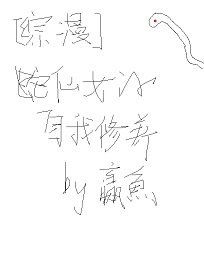 [综漫]
蛇仙女的
自我修养
by 羸鱼